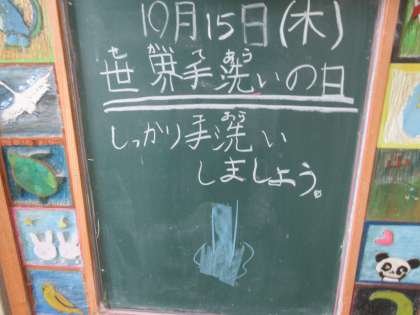 10月15日(木)
世界手洗いの日
しっかり手洗い
しましょう。